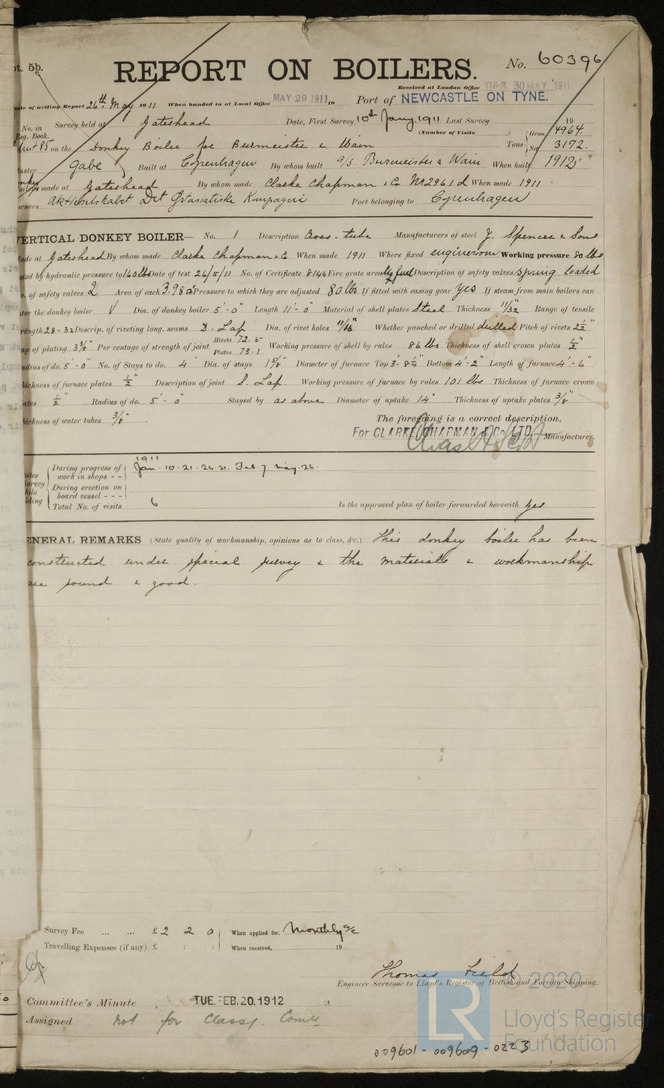 pt. 5b.
REPORT ON BOILERS.
No. 60396
Received at London Office TUES. 30 MAY. 1911
Date of writing Report 26th May 1911 When handed in at Local Office MAY 29 1911 19 Port of NEWCASTLE ON TYNE.
No. in Survey held at Gateshead Date, First Survey 10th Jany. 1911 Last Survey 19
Reg. Book. (Number of Visits ) Gross 4964
on the Donkey Boiler for Burmeister & Wain Tons Net 3172
Master Gabe Built at Copenhagen By whom built A/S. Burmeister & Wain When built 1912
made at Gateshead By whom made Clarke Chapman & Co No 2961 d When made 1911
Owners Aktieselskabet Det Ostasiatiske Kompagni Port belonging to Copenhagen
VERTICAL DONKEY BOILER— No. 1 Description Cross-tube Manufacturers of steel J. Spencer & Sons
Made at Gateshead By whom made Clarke Chapman & Co When made 1911 Where fixed engineroom Working pressure 80 lbs
tested by hydraulic pressure to 160 lbs Date of test 26/5/11 No. of Certificate 8144 Fire grate area oil fuel Description of safety valves Spring loaded
No. of safety valves 2 Area of each 3.98 Pressure to which they are adjusted 80 lbs If fitted with easing gear yes If steam from main boilers can
enter the donkey boiler Dia. of donkey boiler 5'-0" Length 11'-0" Material of shell plates Steel Thickness 11/32 Range of tensile
strength 28-32 Descrip. of riveting long. seams D. Lap Dia. of rivet holes 11/16" Whether punched or drilled drilled Pitch of rivets 2 1/2"
Lap of plating 3 7/8" Per centage of strength of joint Rivets 72.5 Plates 73.1 Working pressure of shell by rules 86 lbs Thickness of shell crown plates 1/2"
Radius of do. 5'-0" No. of Stays to do. 4 Dia. of stays 1 5/8" Diameter of furnace Top 3'-9 1/2" Bottom 4'-2" Length of furnace 4'-6"
Thickness of furnace plates 1/2" Description of joint S. Lap. Working pressure of furnace by rules 101 lbs Thickness of furnace crown
plates 1/2" Radius of do. 5'-0" Stayed by as above Diameter of uptake 14" Thickness of uptake plates 3/8"
Thickness of water tubes 3/8"
The foregoing is a correct description,
For CLARKE, CHAPMAN & Co. LTD. Manufacturer.
1911
During progress of work in shops - - Jan. 10. 21. 24. 31. Feb 7. May. 26.
During erection on board vessel - - -
Total No. of visits 6 Is the approved plan of boiler forwarded herewith yes
GENERAL REMARKS (State quality of workmanship, opinions as to class, &c.) This donkey boiler has been
constructed under special survey & the materials & workmanship
are sound & good.
Survey Fee ... ... £ 2 2 0 When applied for, Monthly a/c
Travelling Expenses (if any) £ : : When received, 19
Thomas Field
Engineer Surveyor to Lloyd's Register of British and Foreign Shipping.
Committee's Minute TUE. FEB. 20. 1912
Assigned not for Classn. Comee
LR © 2020
Lloyd's Register
Foundation
009601 - 009609 - 0223